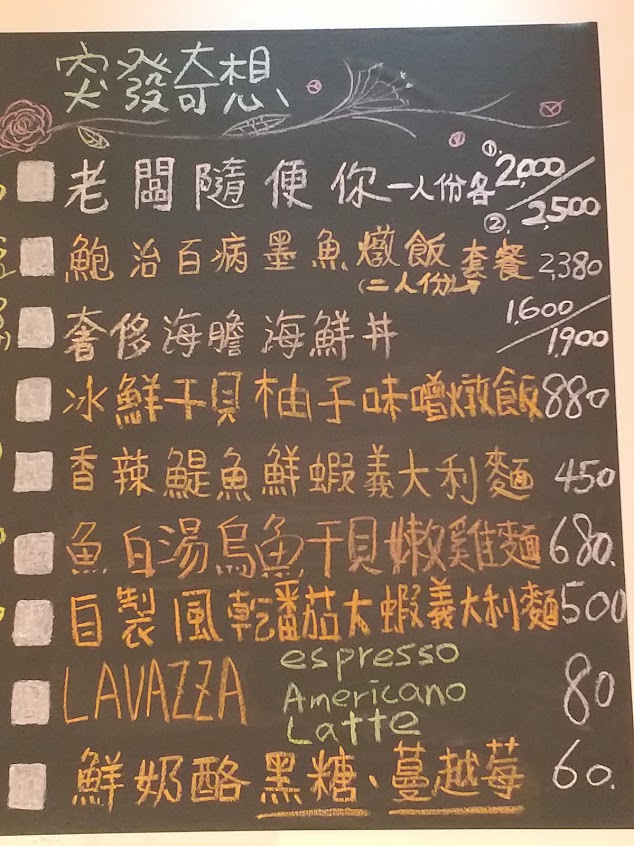 突發奇想
老闆隨便你一人份各①2,000/②2,500
鮑治百病墨魚燉飯套餐2,380
(二人份)
奢侈海膽海鮮丼1,600/1,900
冰鮮干貝柚子味噌燉飯880
香辣鯷魚鮮蝦義大利麵450
魚白湯烏魚干貝嫩雞麵680.
自製風乾番茄大蝦義大利麵500
LAVAZZA espresso 80
Americano
Latte
鮮奶酪黑糖、蔓越莓60.